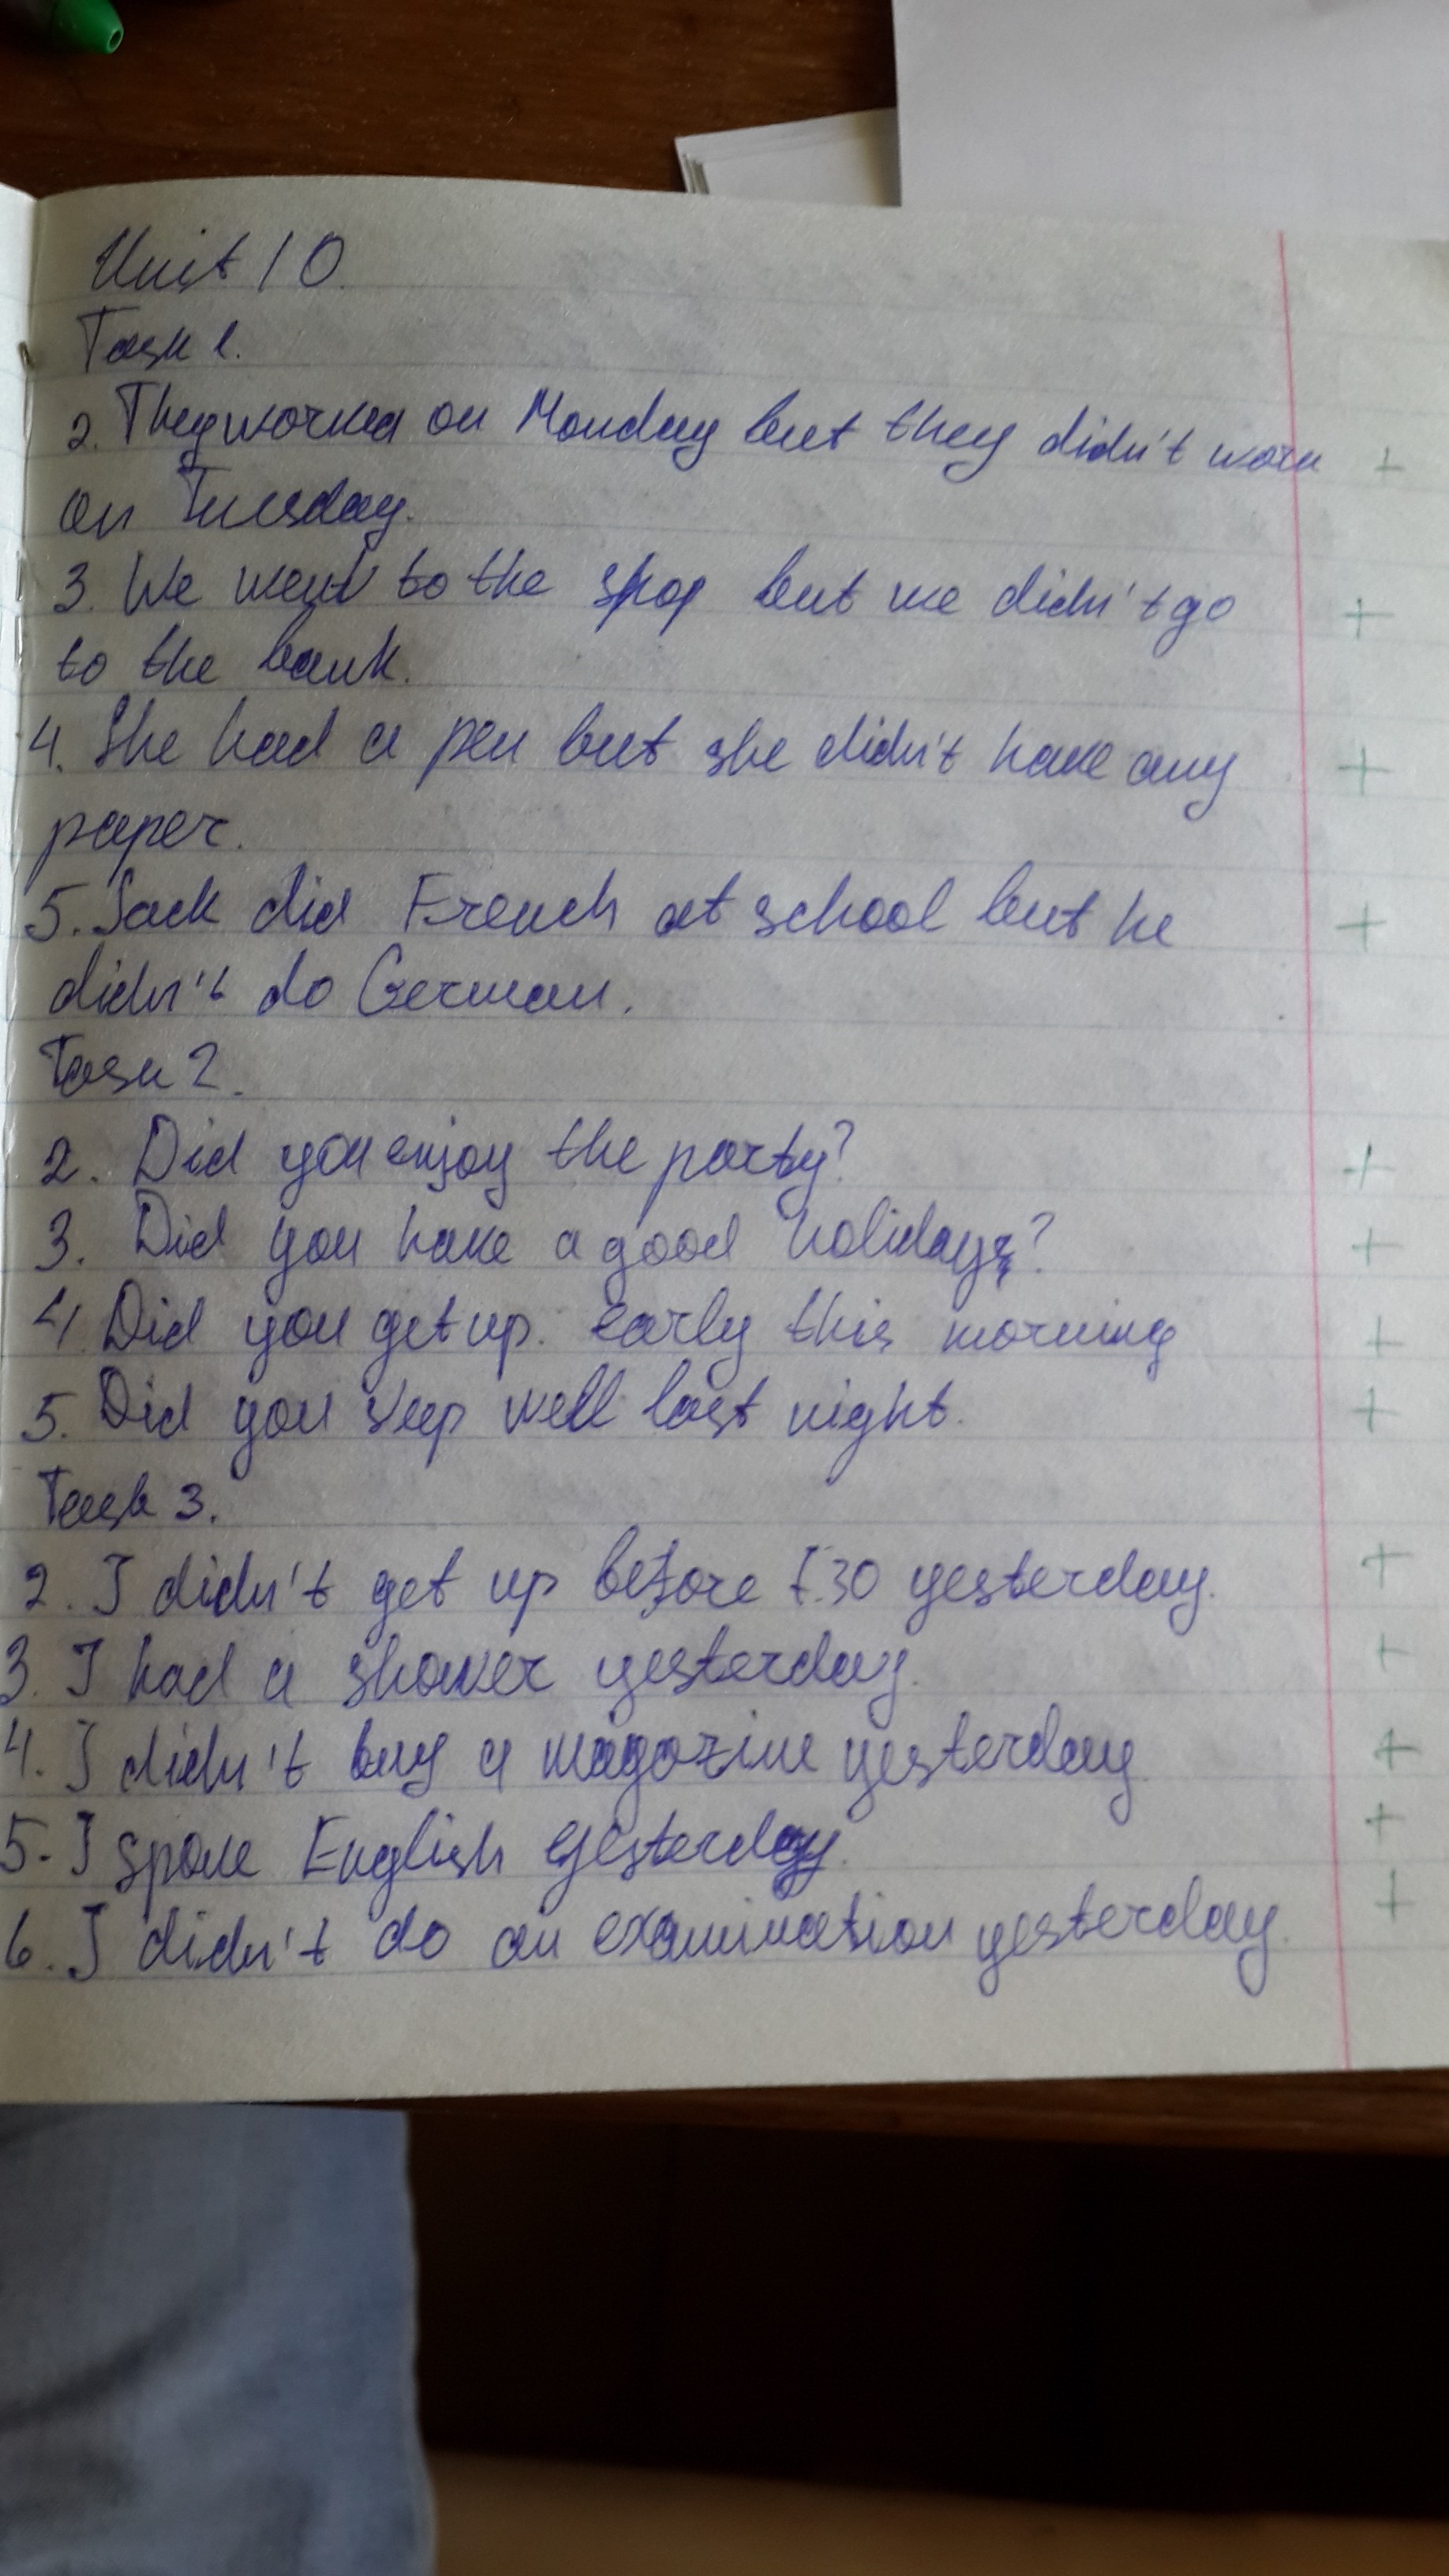 Unit 10.
Task 1.
2. They worked on Monday but they didn't work +
on Tuesday.
3. We went to the shop but we didn't go +
to the bank.
4. She had a pen but she didn't have any +
paper.
5. Jack did French at school but he +
didn't do German.
Task 2.
2. Did you enjoy the party? +
3. Did you have a good holiday? +
4. Did you get up. early this morning +
5. Did you sleep well last night. +
Task 3.
2. I didn't get up before 7.30 yesterday. +
3. I had a shower yesterday. +
4. I didn't buy a magazine yesterday +
5. I spoke English yesterday. +
6. I didn't do an examination yesterday. +